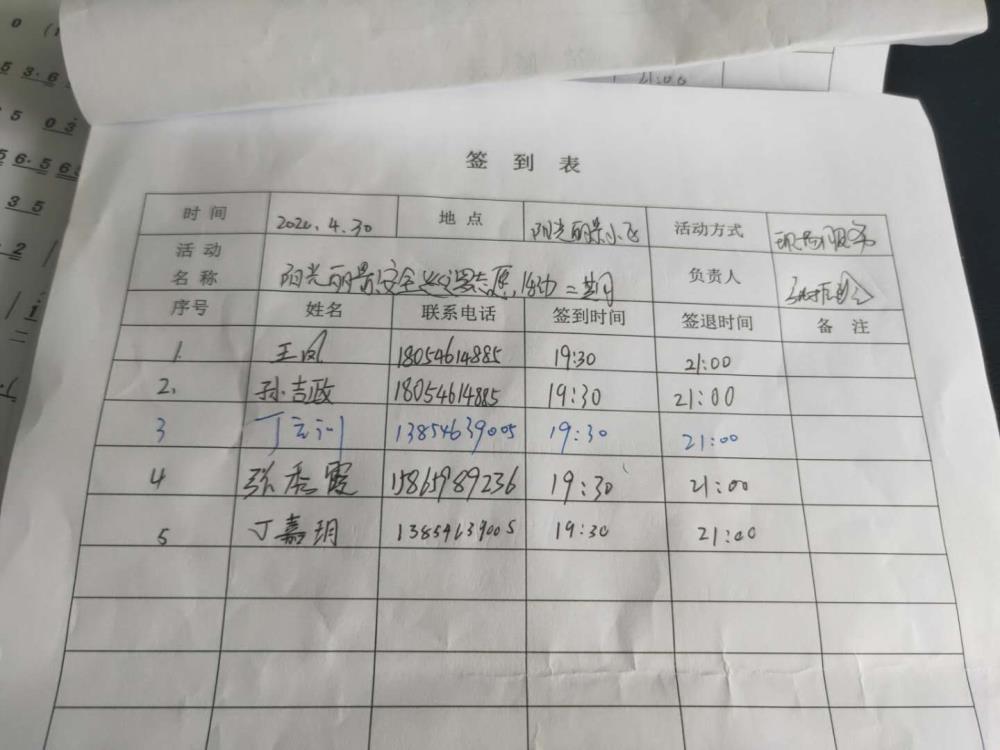 0
5 3·6
5 03
56·56
35
21:00
签 到 表
时 间 2020.4.30 地 点 阳光丽景小 活动方式 现场服务
活 动 名 称 阳光丽景安全 志愿 活动二期 负责人
序号 姓名 联系电话 签到时间 签退时间 备 注
1. 王凤 18054614885 19:30 21:00
2. 孙吉政 18054614885 19:30 21:00
3 丁 13854639005 19:30 21:00
4 张秀霞 15865989236 19:30 21:00
5 丁嘉玥 13854639005 19:30 21:00